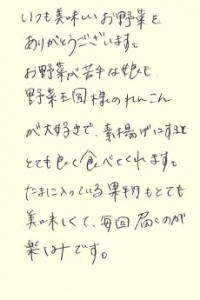 いつも美味しいお野菜を
ありがとうございます。
お野菜が苦手な娘も
野菜王国様のれんこん
が大好きで、素揚げにすると
とても良く食べてくれます。
たまに入っている果物もとても
美味しくて、毎回届くのが
楽しみです。